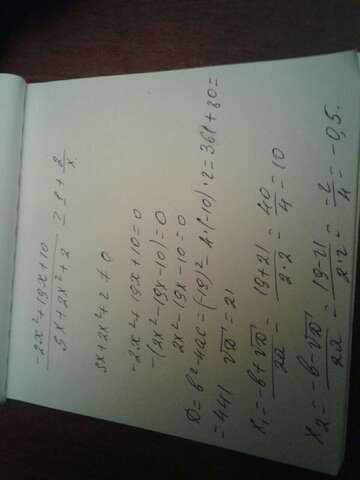 -2x²+19x+10 / 5x+2x²+2 ≥ 1 + 2/x
5x+2x²+2 ≠ 0
-2x²+19x+10=0
-(2x²-19x-10)=0
2x²-19x-10=0
D=b²-4ac=(-19)²-4·(-10)·2=361+80=
=441 √D=21
x₁=-b+√D / 2a = 19+21 / 2·2 = 40/4 = 10
x₂=-b-√D / 2a = 19-21 / 2·2 = -2/4 = -0,5.